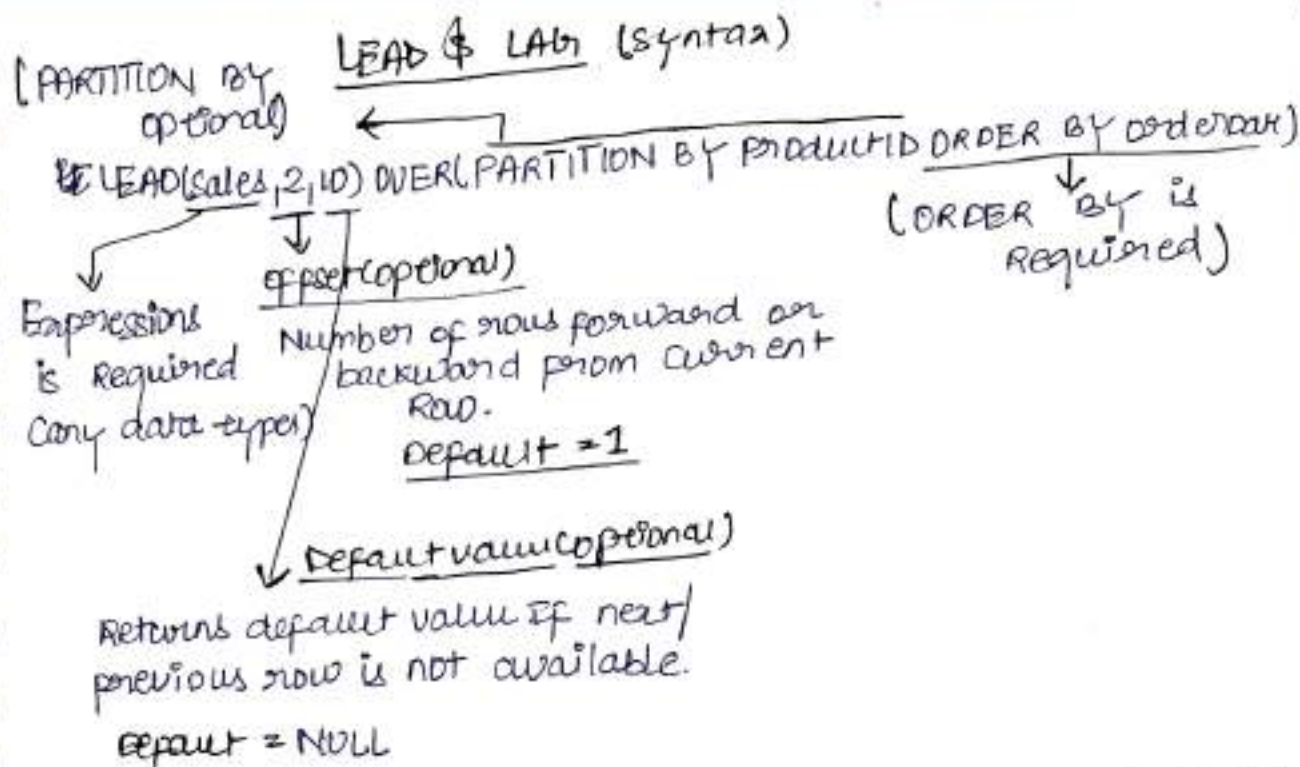 LEAD & LAG (Syntax)
(PARTITION BY
optional)
LEAD(Sales,2,10) OVER(PARTITION BY ProductID ORDER BY orderDate)
(ORDER BY is
Required)
offset(optional)
Expressions
is Required
(any data types)
Number of rows forward or
backward from current
Row.
Default = 1
Default value(optional)
Returns default value If next/
previous row is not available.
Default = NULL